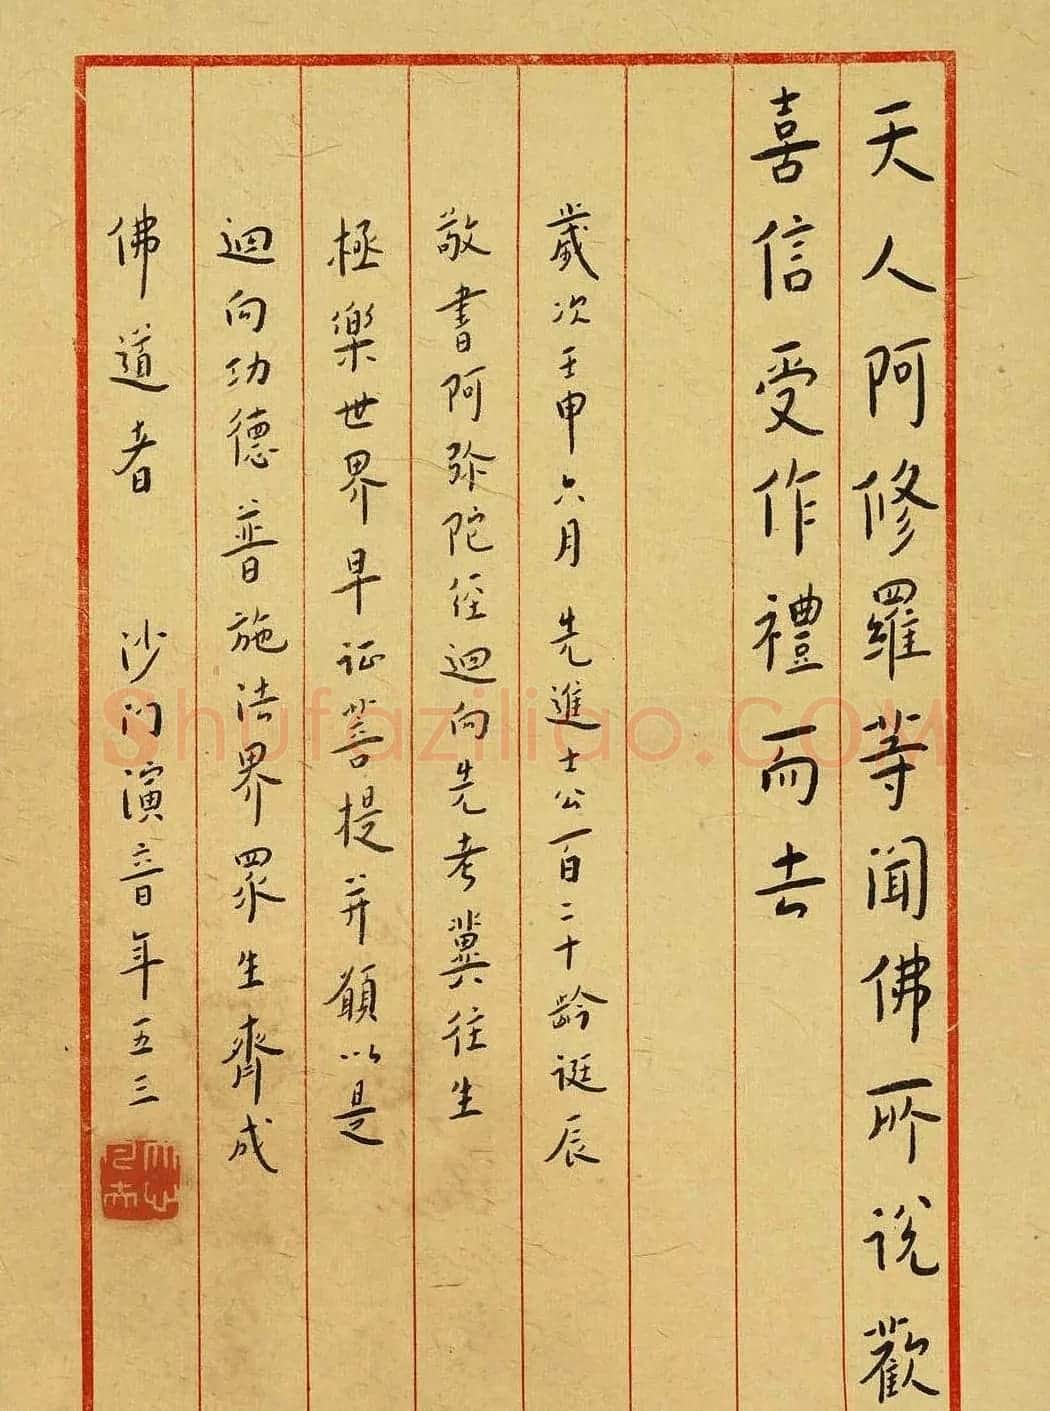 天人阿修羅等闻佛所説歡
喜信受作禮而去
歲次壬申六月先進士公百二十齡誕辰
敬書阿弥陀經迴向先考冀往生
極樂世界早证菩提并願以是
迴向功德普施法界眾生齊成
佛道者 沙门演音年五三
Shufaziliao.COM